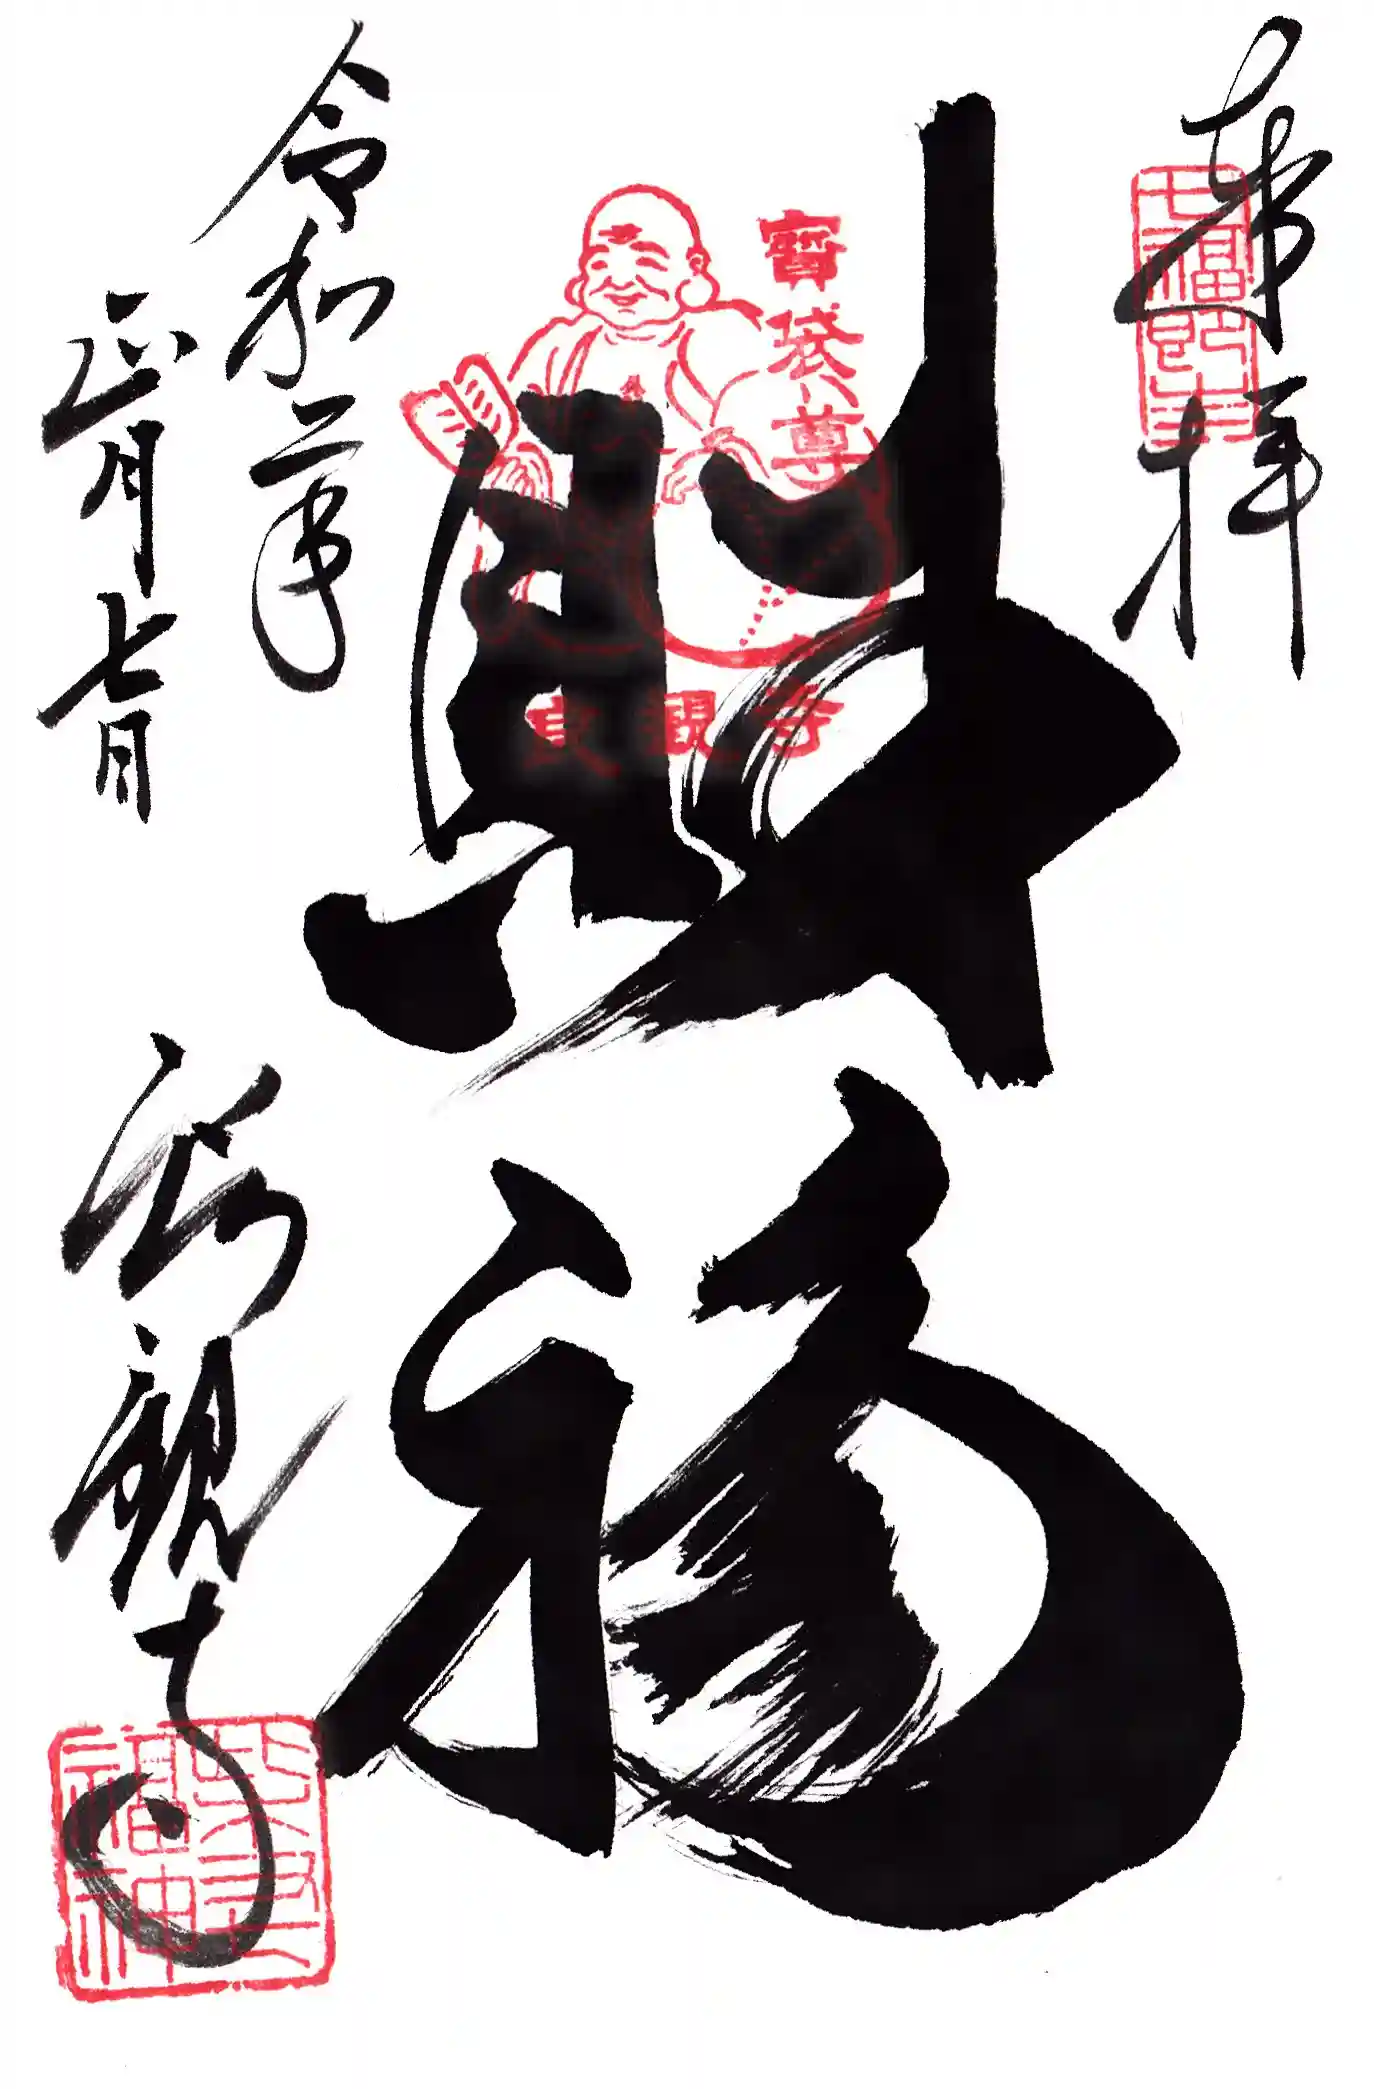 奉拝
七福即生
財福
寶袋尊
良観寺
令和二年
正月七日
良観寺
福神